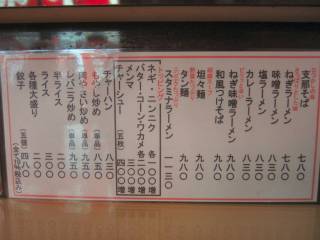 支那そば 七八〇
ねぎラーメン 七八〇
味噌ラーメン 七八〇
塩ラーメン 七八〇
カレーラーメン 九八〇
ねぎ味噌ラーメン 九八〇
和風つけそば 九八〇
坦々麺 九八〇
タン麺 九八〇
スタミナラーメン 一一三〇
トッピング
ネギ・ニンニク 各一〇〇増
バター・コーン・ワカメ 各二〇〇増
メンマ 三〇〇増
チャーシュー (五枚) 四〇〇増
チャーハン 八三〇
もやし炒め (単品) 八五〇
肉やさい炒め (単品) 九五〇
レバニラ炒め (単品) 九五〇
半ライス 二〇〇
ライス 三〇〇
各種大盛り 二〇〇
餃子 (五個) 四八〇
(全て内税込み)